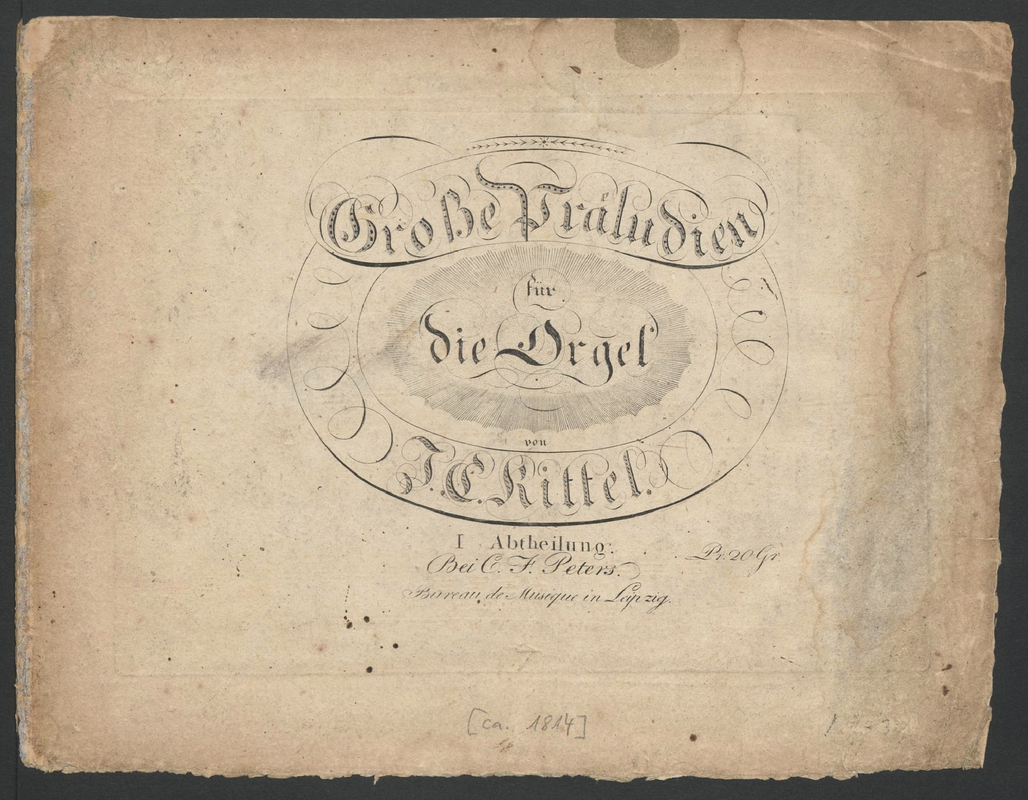 Große Präludien
für
die Orgel
von
J. C. Kittel.
I Abtheilung.
Pr. 20 Gr
Bei C. F. Peters.
Bureau de Musique in Leipzig.
[ca. 1814]